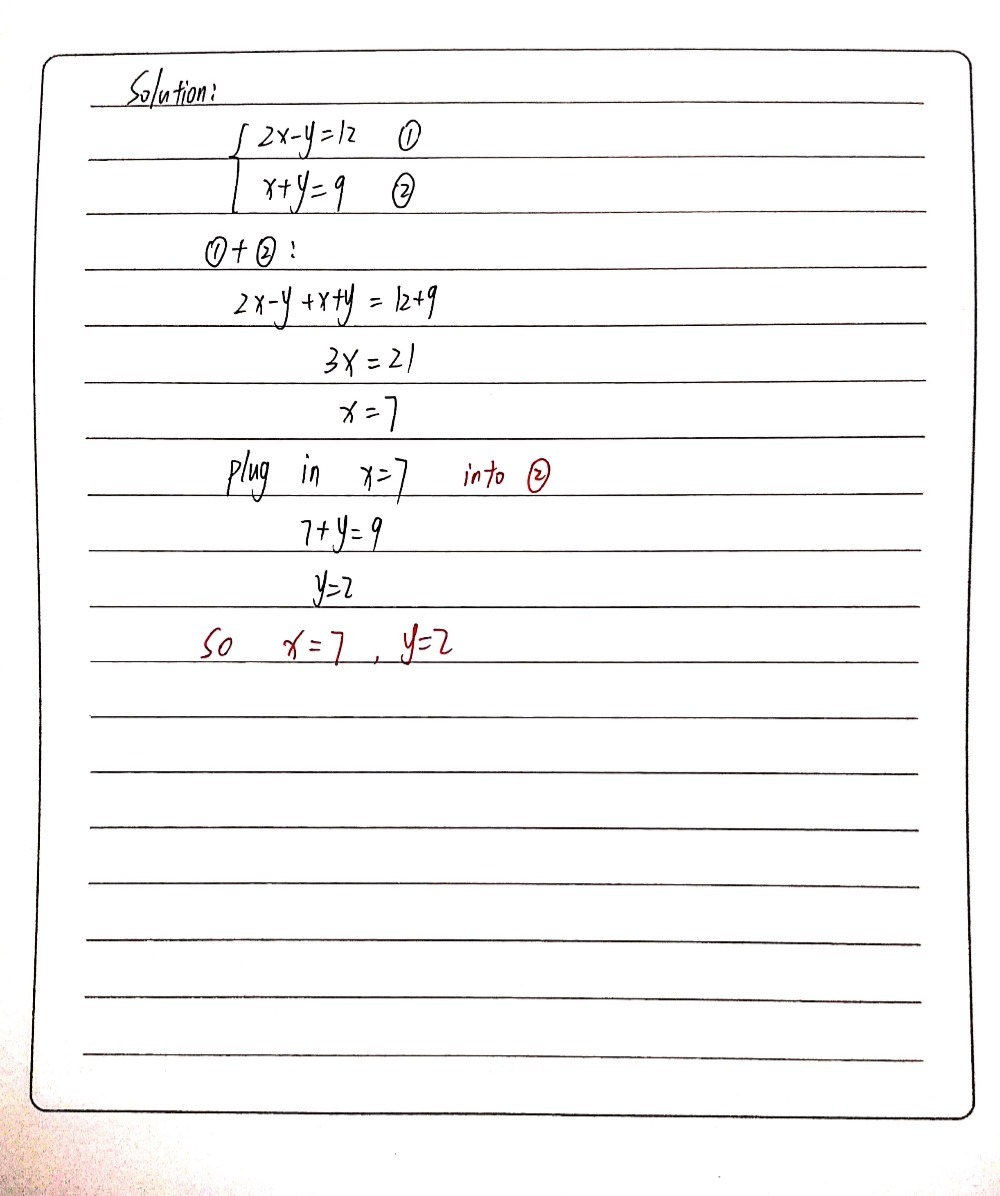 Solution:
{ 2x-y=12 ①
x+y=9 ②
①+②:
2x-y+x+y=12+9
3x=21
x=7
plug in x=7 into ②
7+y=9
y=2
So x=7, y=2